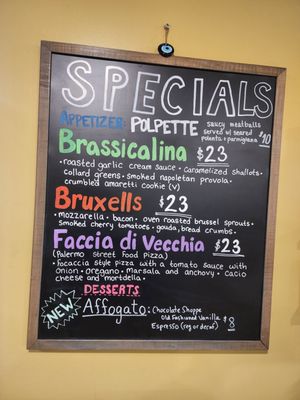 SPECIALS
APPETIZER: POLPETTE saucy meatballs
served w/ seared
polenta + parmigiana $10
Brassicalina $23
• roasted garlic cream sauce • caramelized shallots •
collard greens • smoked napoletan provola •
crumbled amaretti cookie (v)
Bruxells $23
• mozzarella • bacon • oven roasted brussel sprouts •
smoked cherry tomatoes • gouda, bread crumbs •
Faccia di Vecchia $23
(Palermo Street Food Pizza)
• Focaccia style pizza with a tomato sauce with
onion • oregano • Marsala and anchovy • cacio
cheese and mortdella •
DESSERTS
NEW Affogato: Chocolate Shoppe
Old Fashioned Vanilla
Espresso (reg or decaf) $8